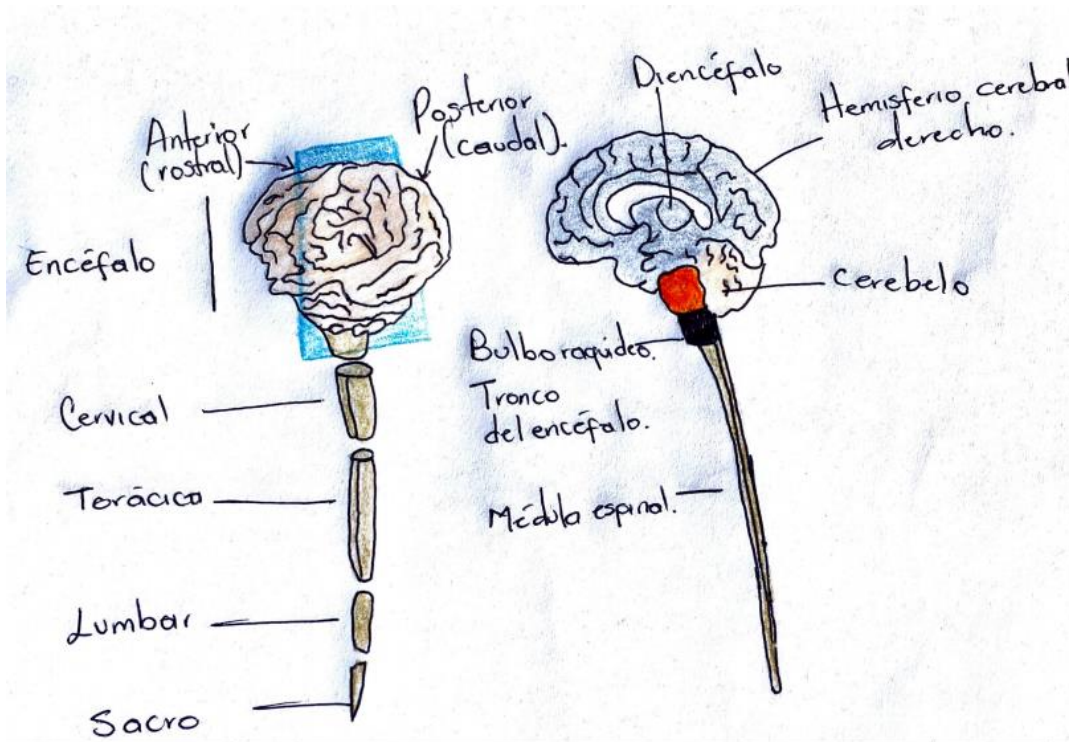 Anterior
(rostral)
Posterior
(caudal).
Encéfalo
Cervical
Torácico
Lumbar
Sacro
Diencéfalo
Hemisferio cerebral
derecho.
cerebelo
Bulbo raquídeo.
Tronco
del encéfalo.
Médula espinal.